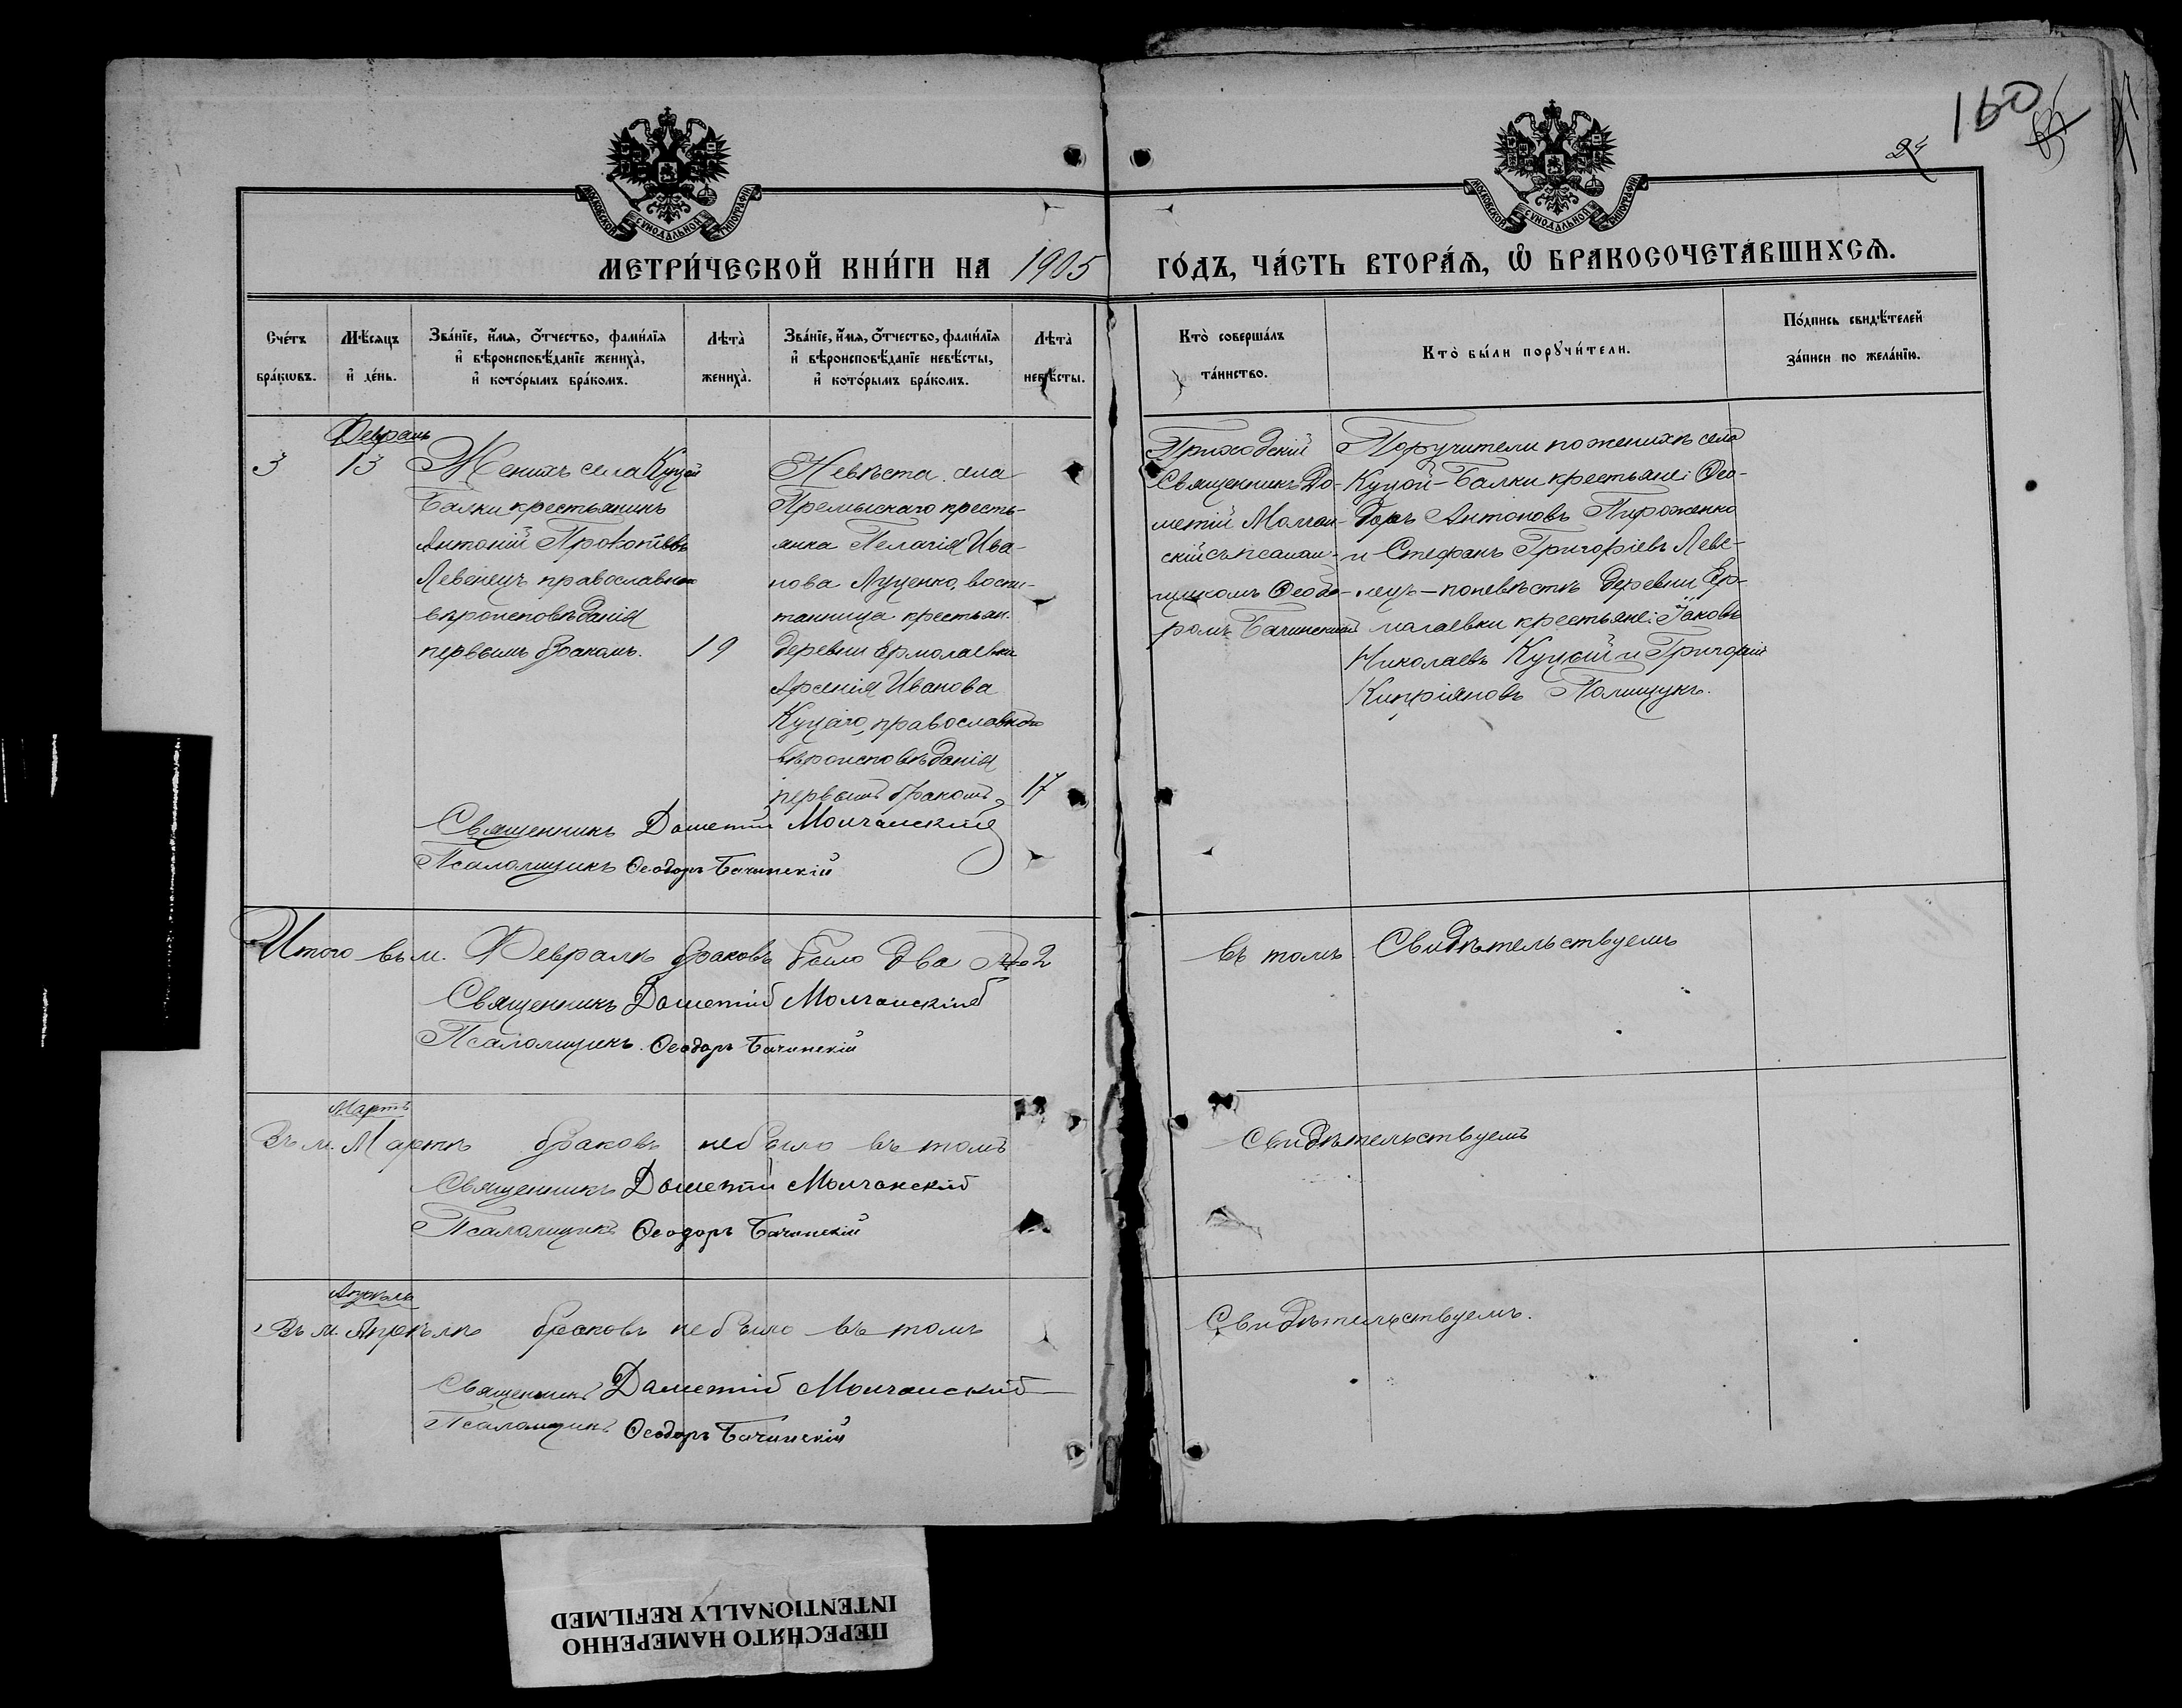 160
24
МОСКОВСКОЙ СѴНОДАЛЬНОЙ ТИПОГРАФІИ
МОСКОВСКОЙ СѴНОДАЛЬНОЙ ТИПОГРАФІИ
МЕТРИ́ЧЕСКОЙ КНИ́ГИ НА 1905 ГО́ДЪ, ЧА́СТЬ ВТОРА́Ѧ, Ѽ БРАКОСОЧЕТА́ВШИХСѦ.
Сче́тъ бра́кѡвъ.
Мѣ́сяцъ и҆ де́нь.
Зва́нїе, и҆́мѧ, ѻ҆́тчество, фами́лїѧ и҆ вѣроисповѣ́данїе жениха̀, и҆ кото́рымъ бра́комъ.
Лѣта̀ жениха̀.
Зва́нїе, и҆́мѧ, ѻ҆́тчество, фами́лїѧ и҆ вѣроисповѣ́данїе невѣ́сты, и҆ кото́рымъ бра́комъ.
Лѣта̀ невѣ́сты.
Кто̀ соверша́лъ та́инство.
Кто̀ бы́ли порꙋчи́тели.
По́дпись свидѣ́телей за́писи по жела́нїю.
Февраль
3
13
Женихъ села Куцой
Балки крестьянинъ
Антоній Прокопіевъ
Левенецъ православнаго
вѣроисповѣданія
первымъ бракомъ.
19
Невѣста села
Премыскаго кресть-
янка Пелагія Ива-
нова Луценко, воспи-
танница крестьян.
деревни Ермолаевки
Арсенія Иванова
Куцаго, православнаго
вѣроисповѣданія
первымъ бракомъ,
17
Приходскій
Священникъ До-
метій Молчан-
скій съ псалом-
щикомъ Ѳеодо-
ромъ Бачинскимъ
Поручители по женихѣ села
Куцой-Балки крестьяне: Ѳео-
доръ Антоновъ Пироженко
и Стефанъ Григоріевъ Леве-
нецъ – по невѣстѣ деревни Ер-
молаевки крестьяне: Іаковъ
Николаевъ Куцый и Григорій
Кипріяновъ Полищукъ.
Священникъ Дометій Молчанскій
Псаломщикъ Ѳеодоръ Бачинскій
Итого въ м. Февралѣ браковъ было два № 2 въ томъ Свидѣтельствуемъ
Священникъ Дометій Молчанскій
Псаломщикъ Ѳеодоръ Бачинскій
Мартъ
Въ м. Мартѣ браковъ не было въ томъ Свидѣтельствуемъ
Священникъ Дометій Молчанскій
Псаломщикъ Ѳеодоръ Бачинскій
Апрѣль
Въ м. Апрѣлѣ браковъ не было въ томъ Свидѣтельствуемъ.
Священникъ Дометій Молчанскій
Псаломщикъ Ѳеодоръ Бачинскій
ПЕРЕСНЯТО НАМЕРЕННО
INTENTIONALLY REFILMED